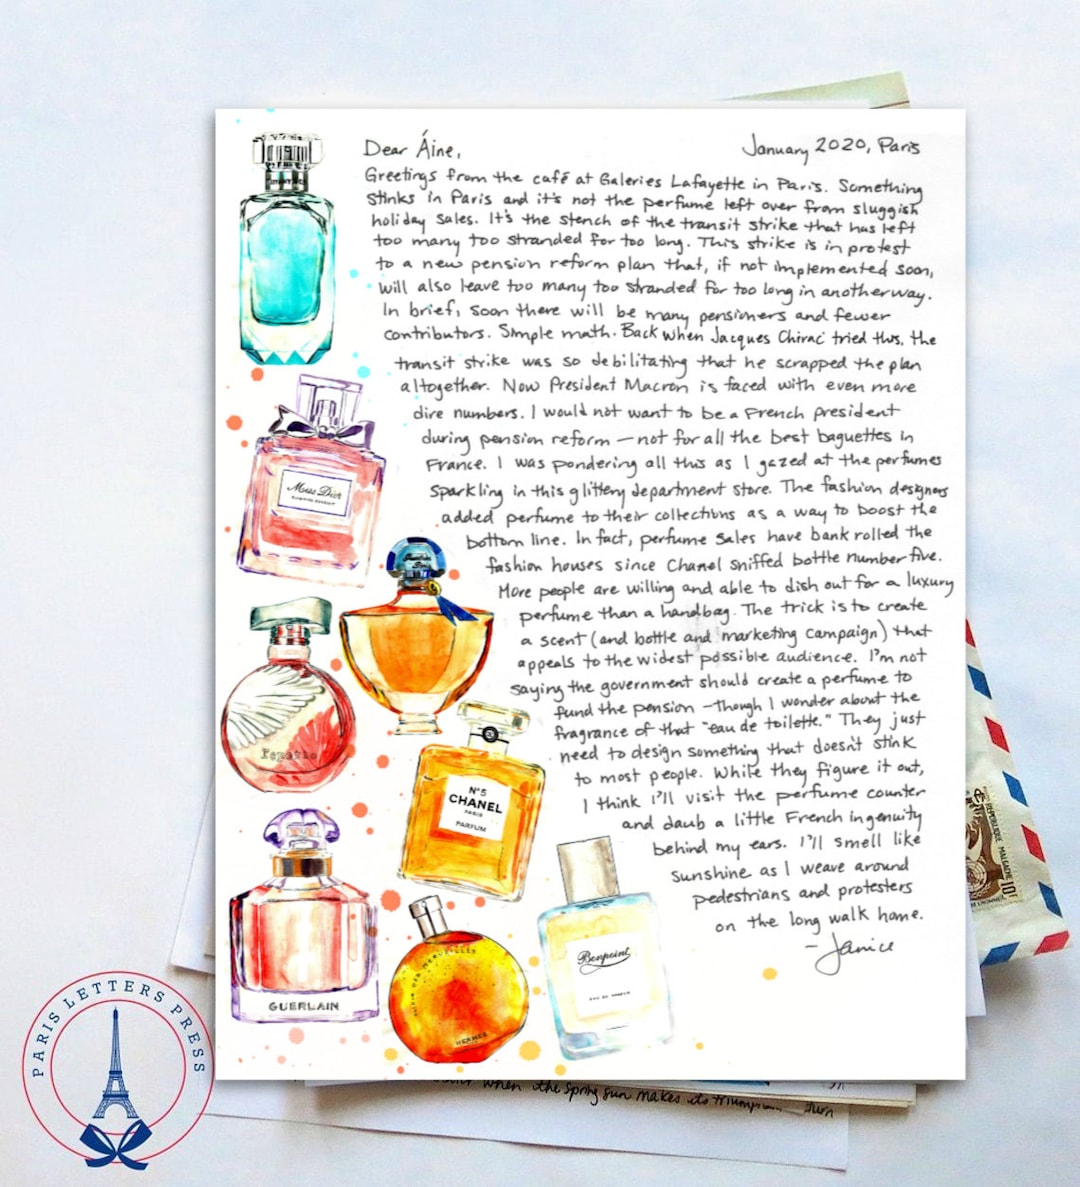 Dear Áine,
January 2020, Paris
Greetings from the café at Galeries Lafayette in Paris. Something
stinks in Paris and it's not the perfume left over from sluggish
holiday sales. It's the stench of the transit strike that has left
too many too stranded for too long. This strike is in protest
to a new pension reform plan that, if not implemented soon,
will also leave too many too stranded for too long in another way.
In brief, soon there will be many pensioners and fewer
contributors. Simple math. Back when Jacques Chirac tried this, the
transit strike was so debilitating that he scrapped the plan
altogether. Now President Macron is faced with even more
dire numbers. I would not want to be a French president
during pension reform — not for all the best baguettes in
France. I was pondering all this as I gazed at the perfumes
sparkling in this glittery department store. The fashion designers
added perfume to their collections as a way to boost the
bottom line. In fact, perfume sales have bank rolled the
fashion houses since Chanel sniffed bottle number five.
More people are willing and able to dish out for a luxury
perfume than a handbag. The trick is to create
a scent (and bottle and marketing campaign) that
appeals to the widest possible audience. I'm not
saying the government should create a perfume to
fund the pension – though I wonder about the
fragrance of that "eau de toilette." They just
need to design something that doesn't stink
to most people. While they figure it out,
I think I'll visit the perfume counter
and daub a little French ingenuity
behind my ears. I'll smell like
sunshine as I weave around
pedestrians and protesters
on the long walk home.
– Janice
Miss Dior
N°5
CHANEL
PARIS
PARFUM
GUERLAIN
HERMES
Bonpoint
EAU DE PARFUM
PARIS LETTERS PRESS
REPUBLIQUE MALGACHE
10F
when the spring sun makes its